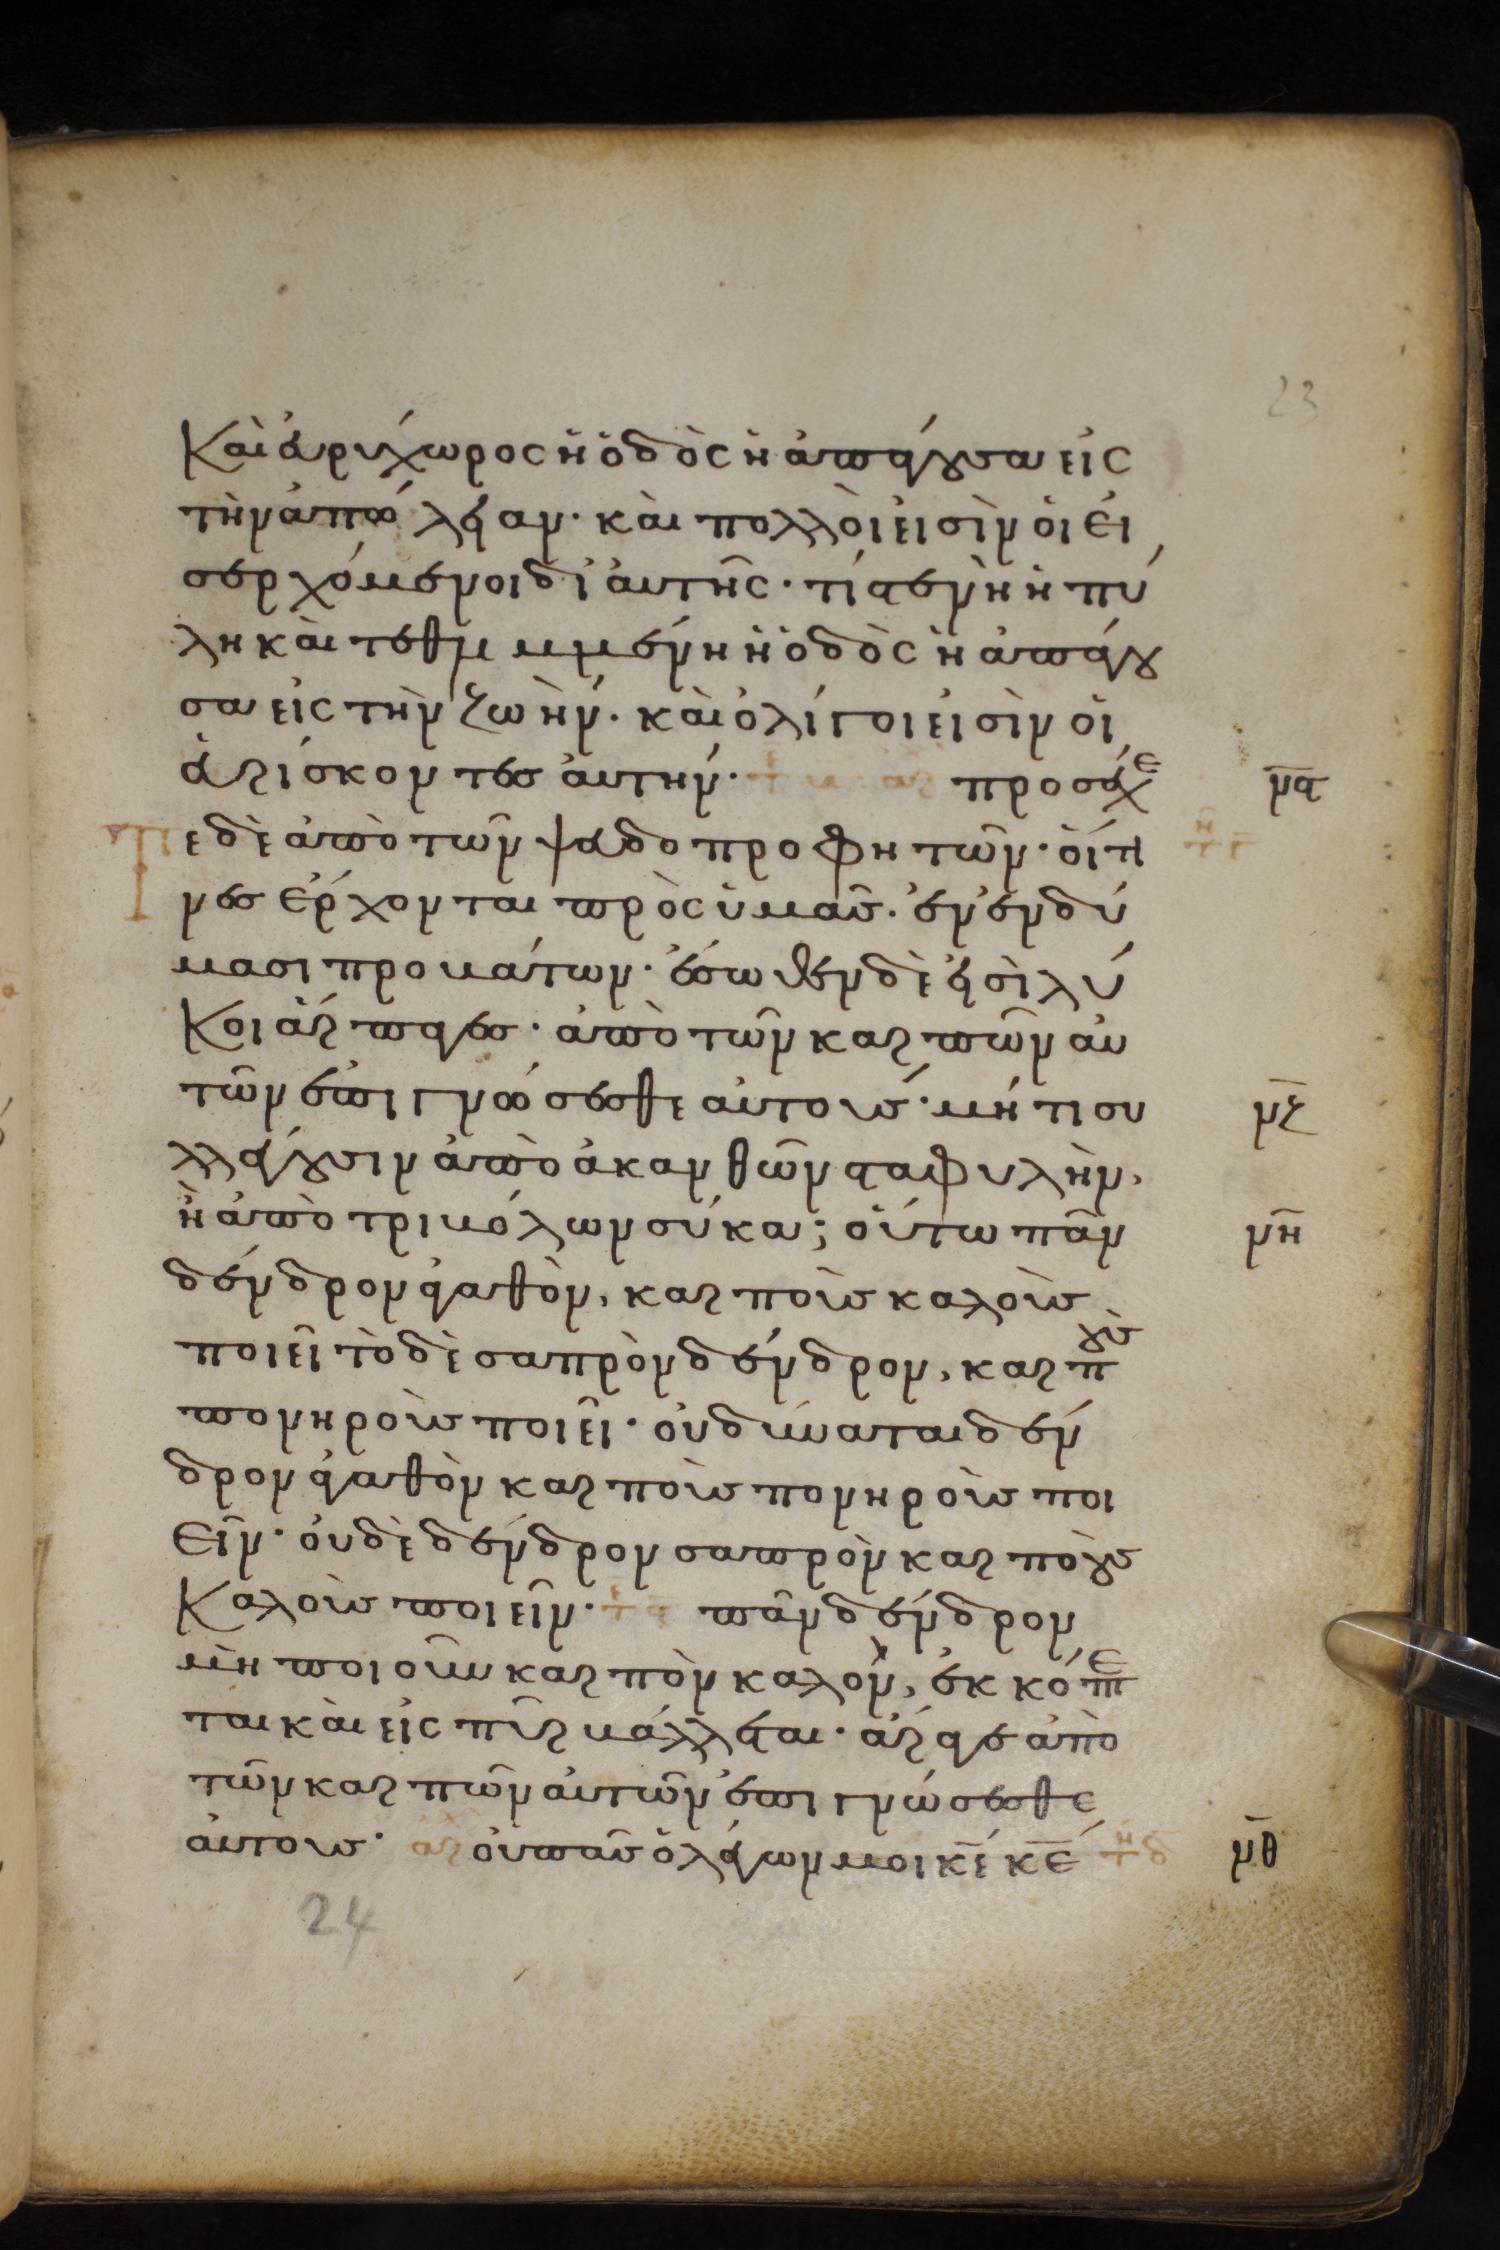 23
Καὶ εὐρύχωρος ἡ ὁδὸς ἡ ἀπάγουσα εἰς
τὴν ἀπώλειαν· καὶ πολλοὶ εἰσὶν οἱ εἰ
σερχόμενοι δι' αὐτῆς· τί στενὴ ἡ πύ
λη καὶ τεθλιμμένη ἡ ὁδὸς ἡ ἀπάγου
σα εἰς τὴν ζωήν· καὶ ὀλίγοι εἰσὶν οἱ
εὑρίσκοντες αὐτήν· προσέχε μϛ
τε δὲ ἀπὸ τῶν ψευδοπροφητῶν· οἵτι
νες ἔρχονται πρὸς ὑμᾶς· ἐν ἐνδύ
μασι προβάτων· ἔσωθεν δὲ εἰσὶ λύ
Κοι ἅρπαγες· ἀπὸ τῶν καρπῶν αὐ
τῶν ἐπιγνώσεσθε αὐτούς· μήτι συ μζ
λλέγουσιν ἀπὸ ἀκανθῶν σταφυλὴν,
ἢ ἀπὸ τριβόλων σύκα; οὕτω πᾶν μη
δένδρον ἀγαθὸν, καρποὺς καλοὺς
ποιεῖ τὸ δὲ σαπρὸν δένδρον, καρποὺς
πονηροὺς ποιεῖ· οὐ δύναται δέν
δρον ἀγαθὸν καρποὺς πονηροὺς ποι
εῖν· οὐδὲ δένδρον σαπρὸν καρποὺς
Καλοὺς ποιεῖν· πᾶν δένδρον
μὴ ποιοῦν καρπὸν καλὸν, ἐκκόπτε
ται καὶ εἰς πῦρ βάλλεται· ἄραγε ἀπὸ
τῶν καρπῶν αὐτῶν ἐπιγνώσεσθε
αὐτούς· οὐ πᾶς ὁ λέγων μοι κε κε μθ
24